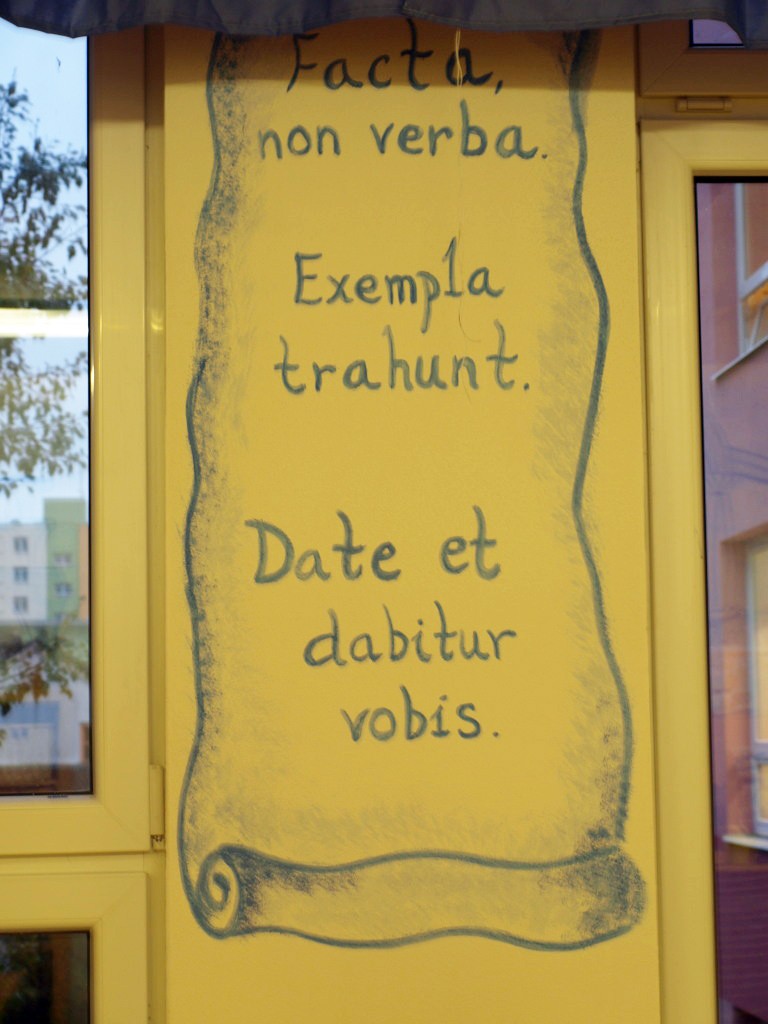 Facta,
non verba.
Exempla
trahunt.
Date et
dabitur
vobis.